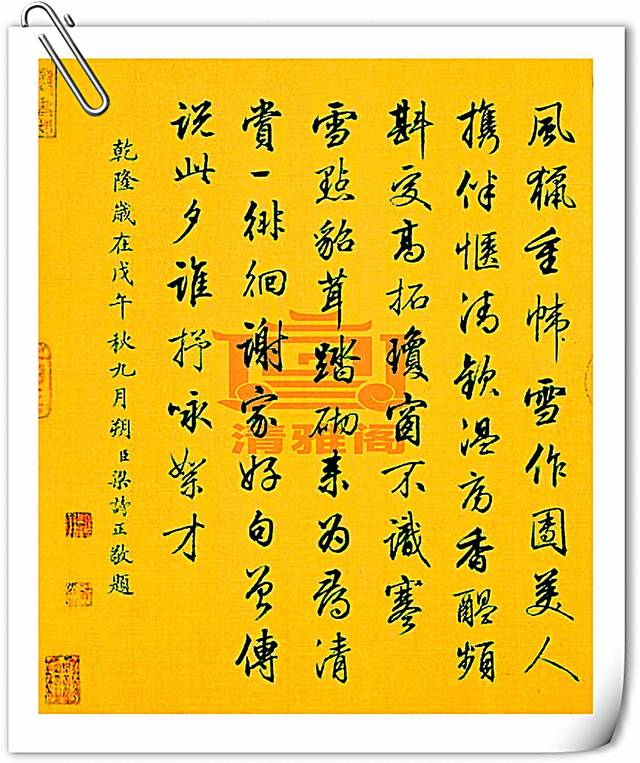 風獵重帏雪作團美人
携伴愜清歡温房香醖頻
斟處高拓瓊窗不識寒
雪點貂茸踏砌来为尋清
賞一徘徊謝家好句曾傳
说此夕誰抒咏絮才
乾隆歲在戊午秋九月朔臣梁詩正敬題
清雅阁